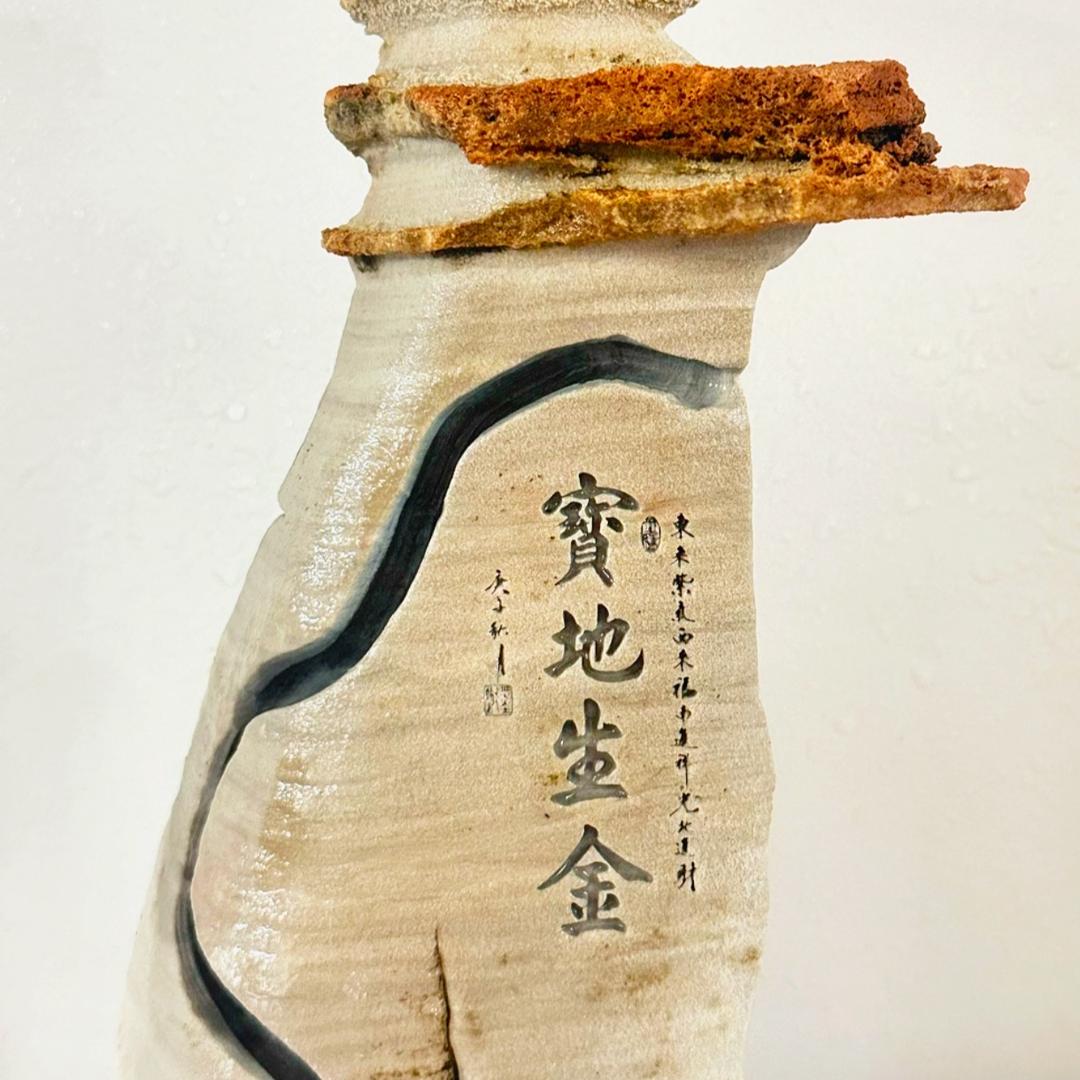 東來紫氣西來福南進祥光北進財
寶地生金
庚子秋月